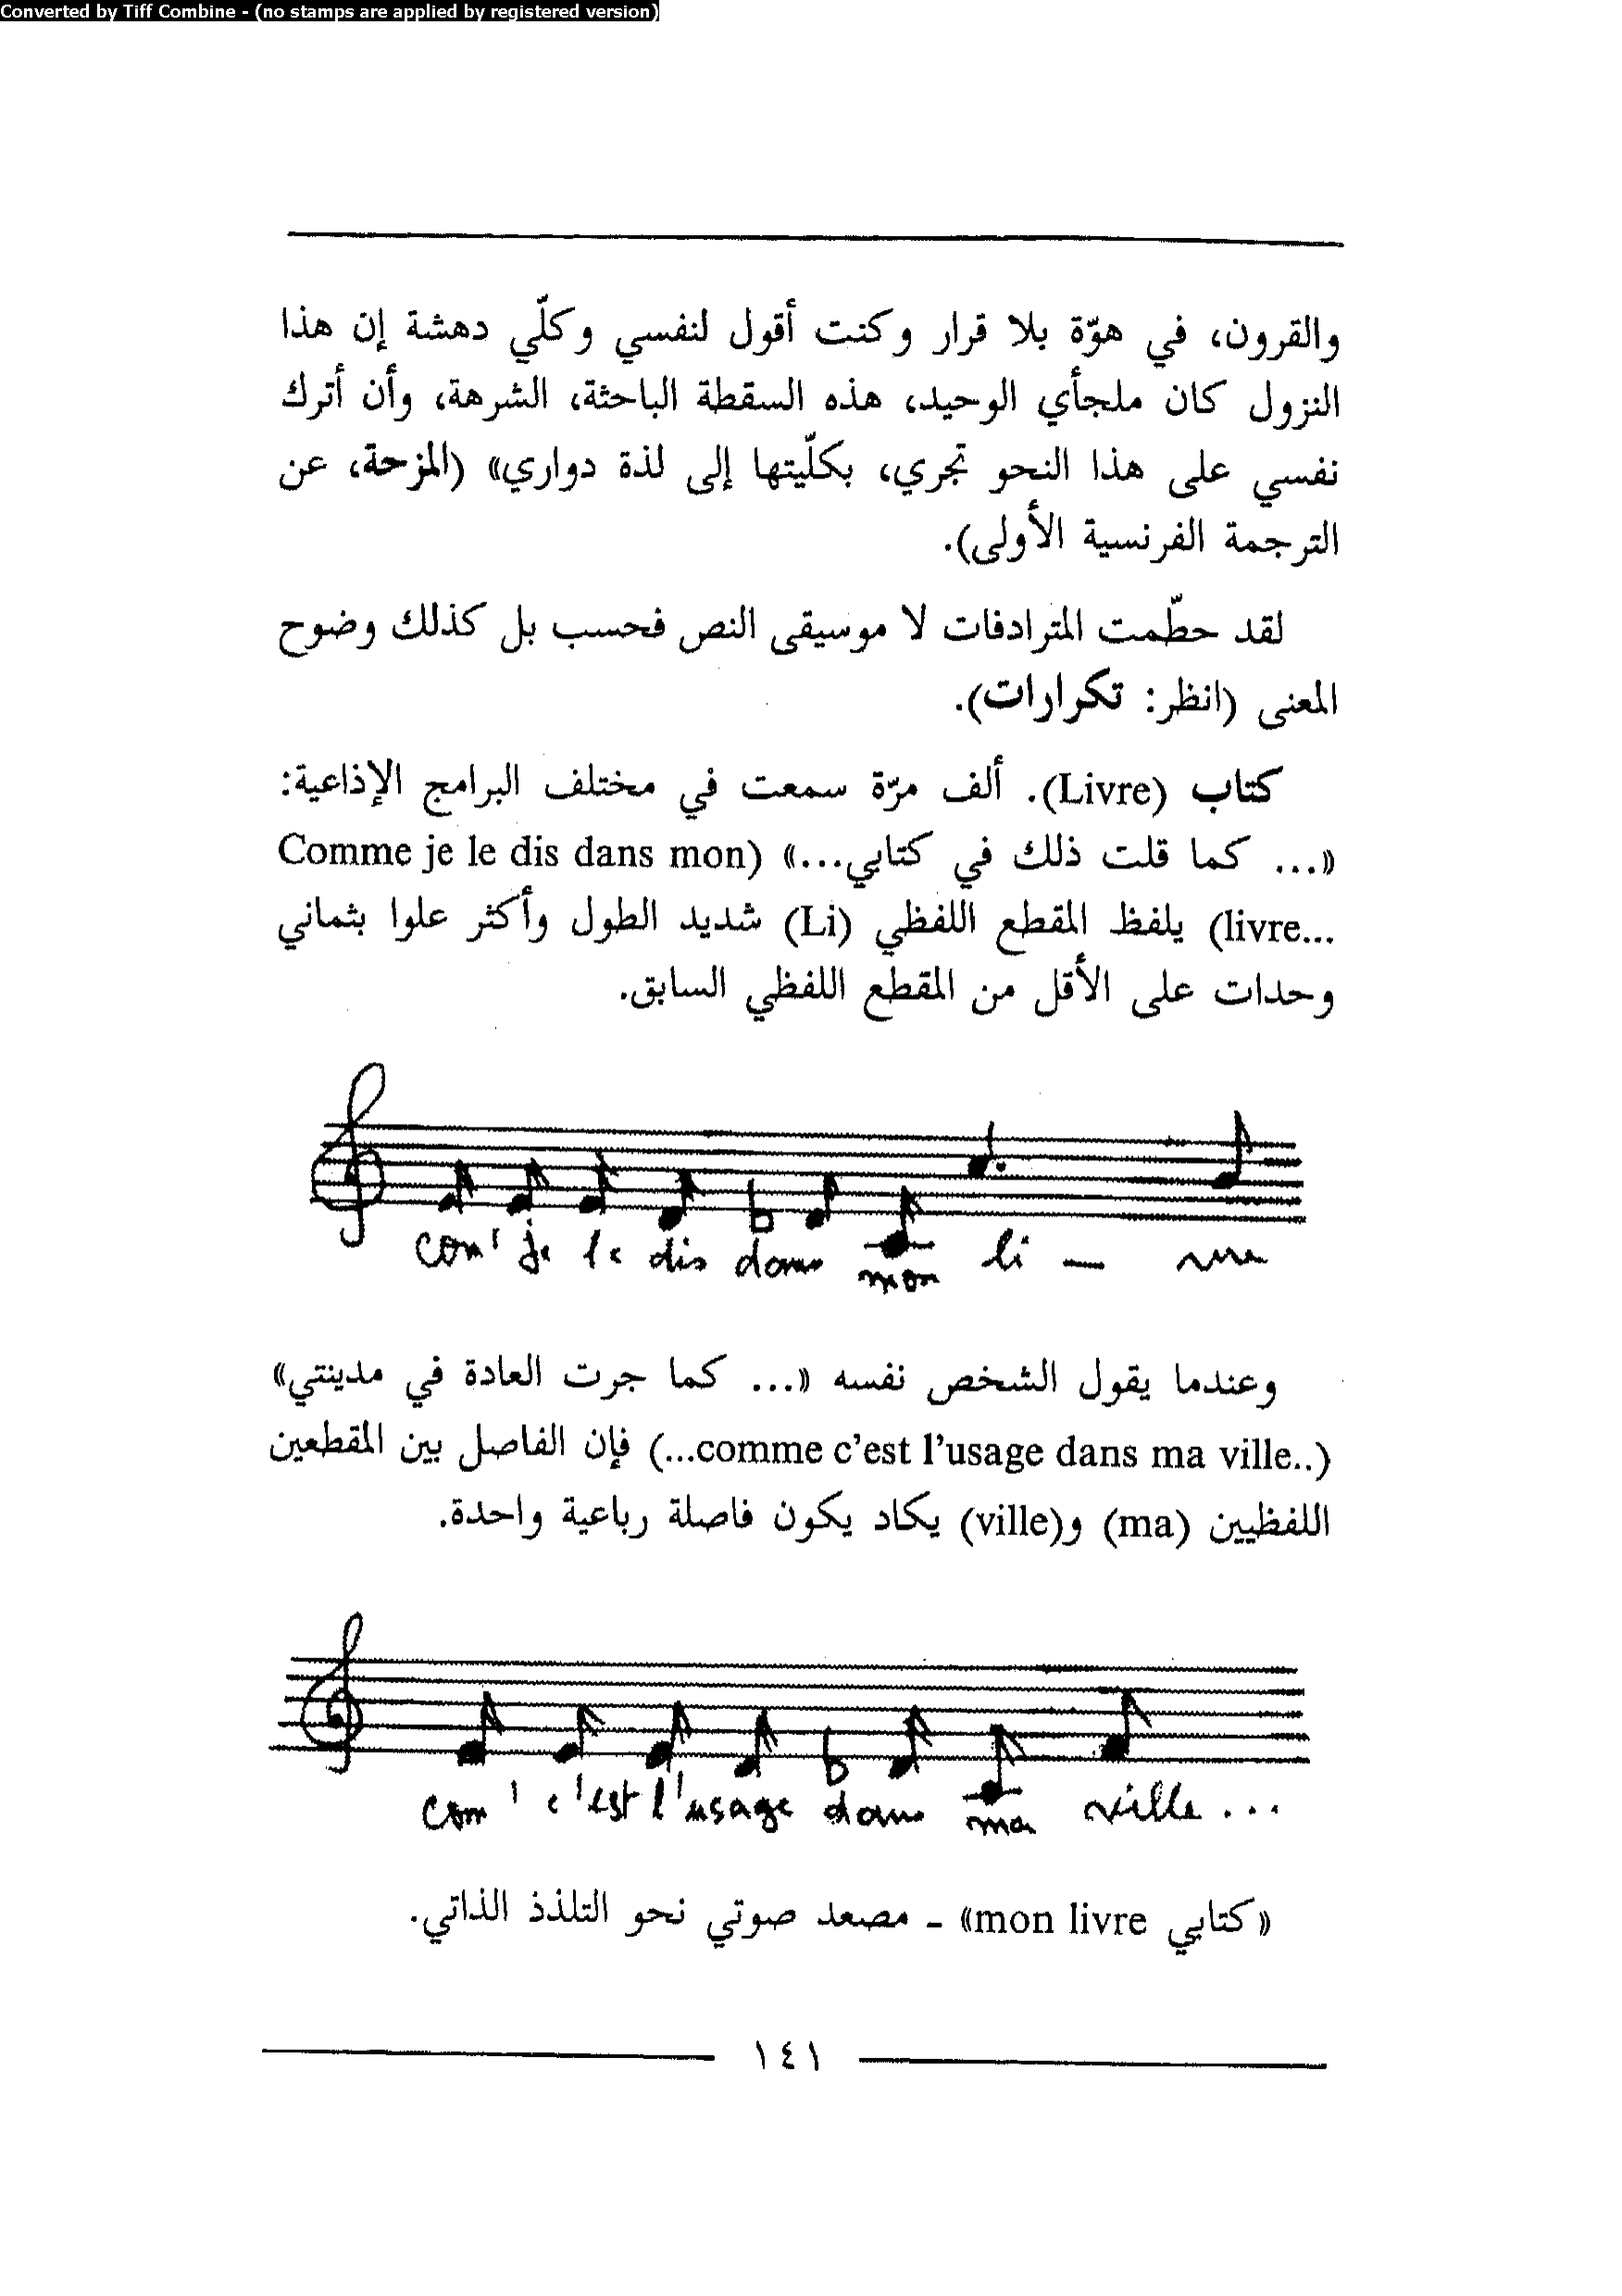 Converted by Tiff Combine - (no stamps are applied by registered version)
والقرون، في هوّة بلا قرار وكنت أقول لنفسي وكلّي دهشة إن هذا
النزول كان ملجأي الوحيد، هذه السقطة الباحثة، الشرهة، وأن أترك
نفسي على هذا النحو تجري، بكلّيتها إلى لذة دواري» (المزحة، عن
الترجمة الفرنسية الأولى).
لقد حطّمت المترادفات لا موسيقى النص فحسب بل كذلك وضوح
المعنى (انظر: تكرارات).
كتاب (Livre). ألف مرّة سمعت في مختلف البرامج الإذاعية:
«... كما قلت ذلك في كتابي...» (Comme je le dis dans mon
livre...) يلفظ المقطع اللفظي (Li) شديد الطول وأكثر علوا بثماني
وحدات على الأقل من المقطع اللفظي السابق.
com' je le dis dans mon li — vre
وعندما يقول الشخص نفسه «... كما جرت العادة في مدينتي»
(...comme c'est l'usage dans ma ville..) فإن الفاصل بين المقطعين
اللفظيين (ma) و(ville) يكاد يكون فاصلة رباعية واحدة.
com' c'est l'usage dans ma ville ...
«كتابي mon livre» - مصعد صوتي نحو التلذذ الذاتي.
١٤١